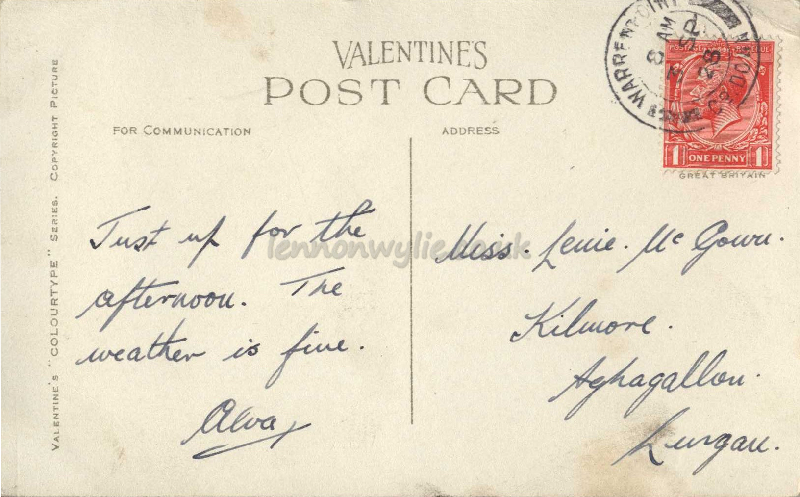 VALENTINE'S
POST CARD
FOR COMMUNICATION
ADDRESS
VALENTINE'S "COLOURTYPE" SERIES. COPYRIGHT PICTURE
WARRENPOINT
CO DOWN
POSTAGE REVENUE
1 ONE PENNY 1
GREAT BRITAIN
Just up for the
afternoon. The
weather is fine.
Alva
lennonwylie.co.uk
Miss. Lenie. Mc Gown.
Kilmore.
Aghagallon.
Lurgan.